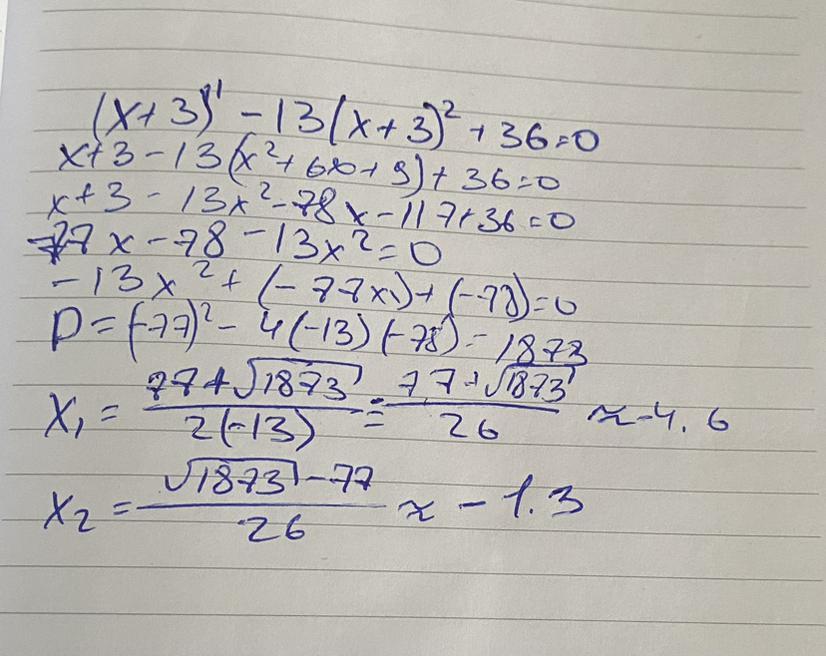 (x+3)¹ - 13(x+3)² + 36 = 0
x+3 - 13(x²+6x+9) + 36 = 0
x+3 - 13x² - 78x - 117 + 36 = 0
-77x - 78 - 13x² = 0
-13x² + (-77x) + (-78) = 0
D = (-77)² - 4(-13)(-78) = 1873
x₁ = (77+√1873)/(2(-13)) = (77+√1873)/26 ≈ -4.6
x₂ = (√1873 - 77)/26 ≈ -1.3